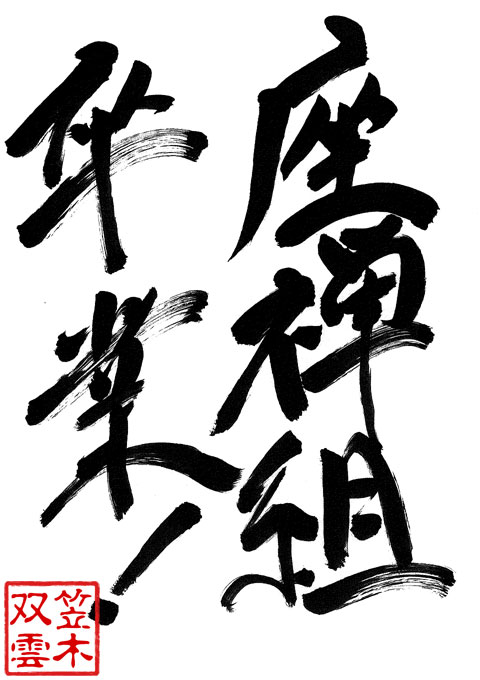 座禅組
卒業!
笠木
双雲